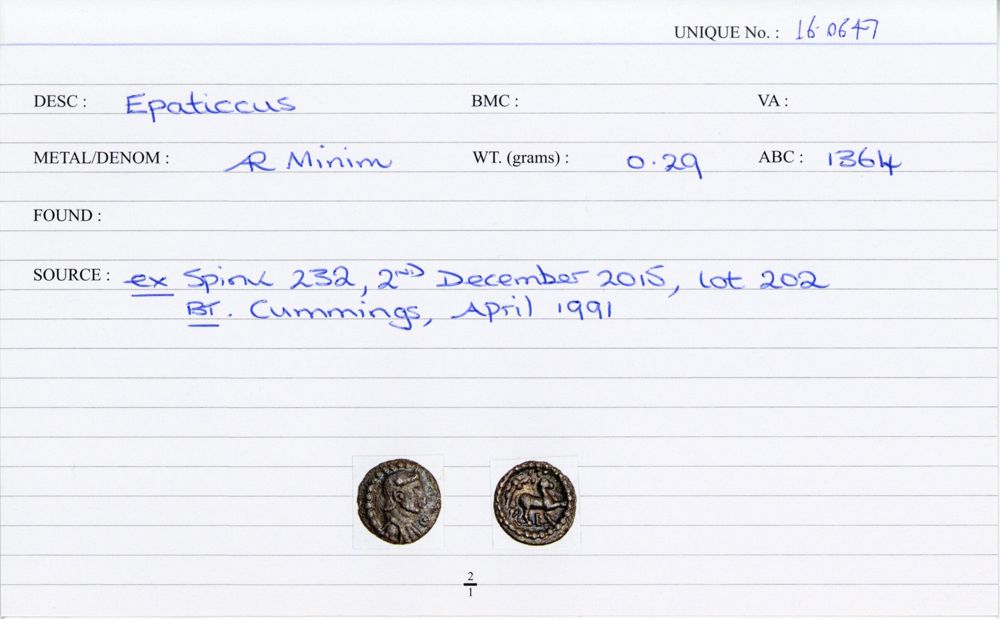 UNIQUE No. : 16.0647
DESC : Epaticcus BMC : VA :
METAL/DENOM : AR Minim WT. (grams) : 0.29 ABC : 1364
FOUND :
SOURCE : ex Spink 232, 2ND December 2015, lot 202
BT. Cummings, April 1991
2
1